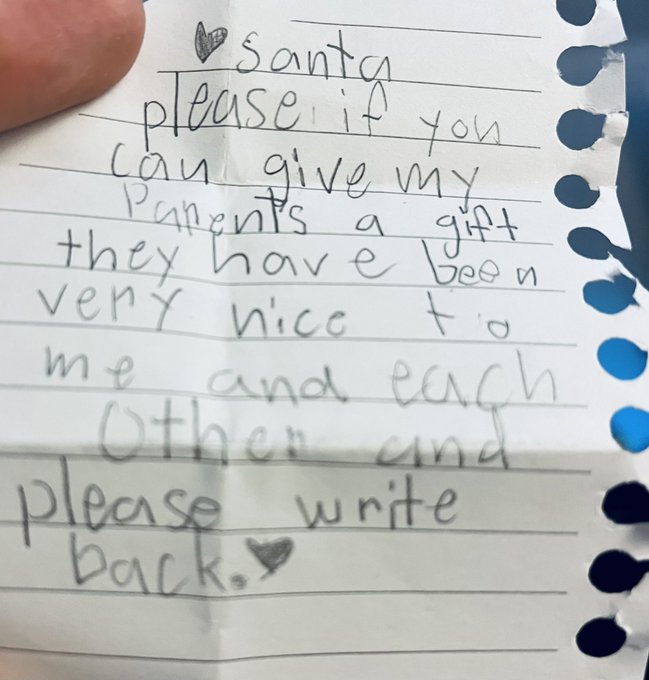 ♥ santa
please if you
can give my
Parents a gift
they have been
very nice to
me and each
Other and
please write
back. ♥